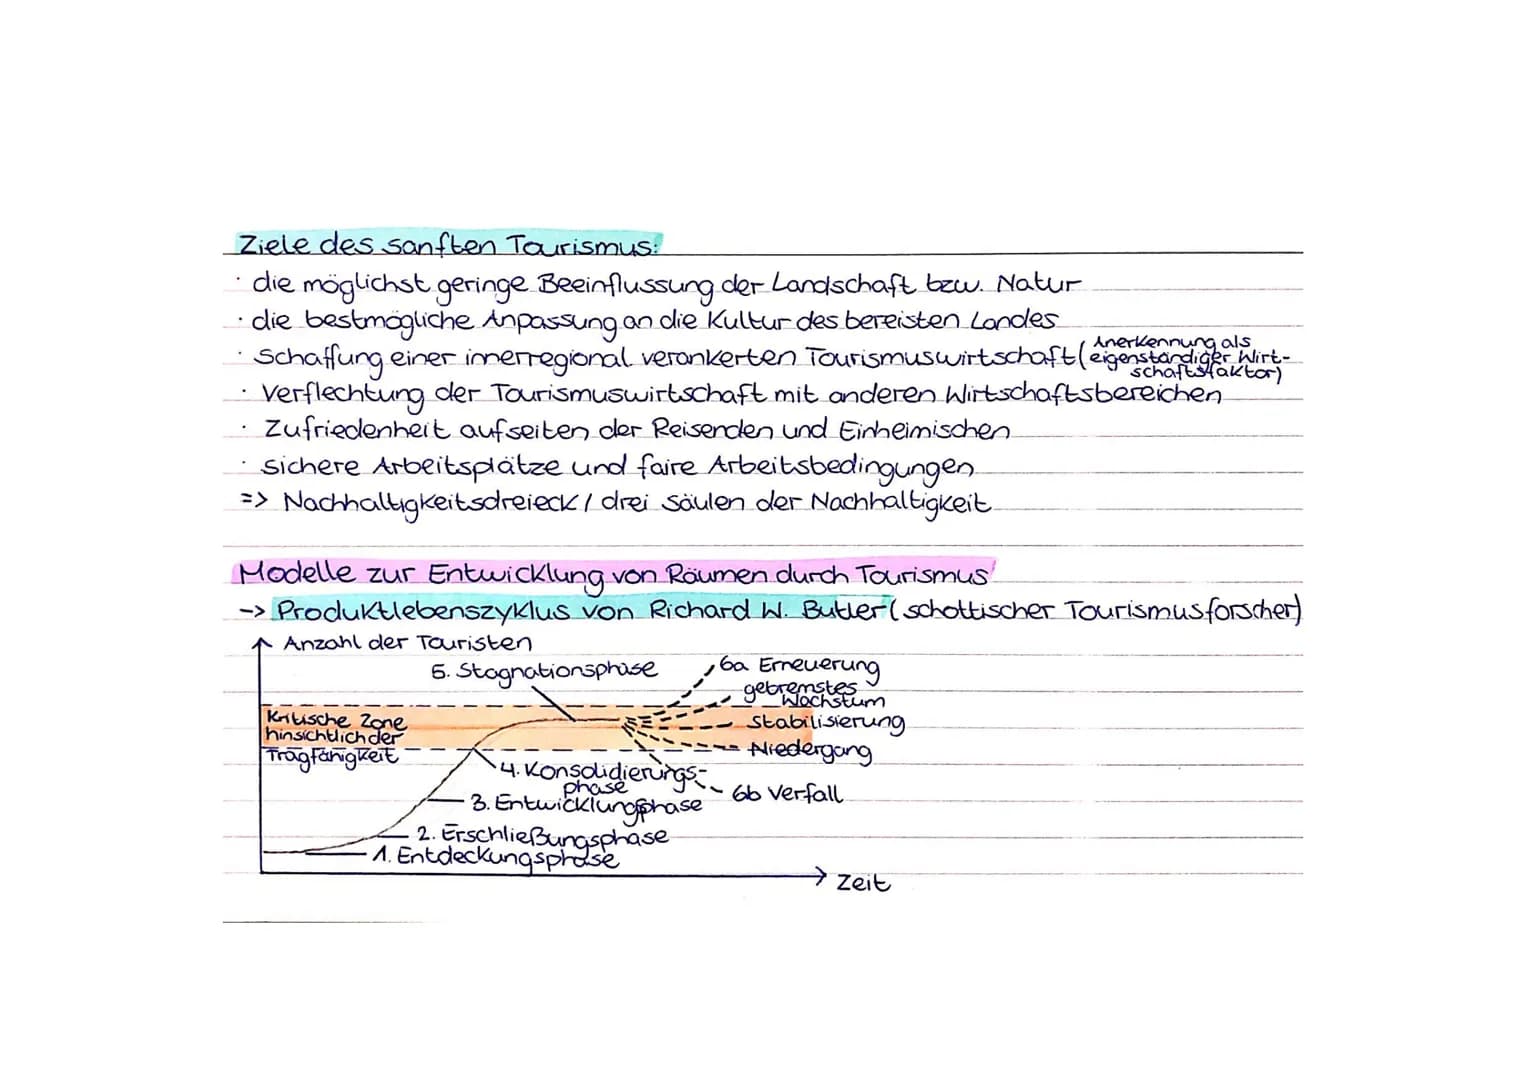 Ziele des sanften Tourismus:
· die möglichst geringe Beeinflussung der Landschaft bzw. Natur
· die bestmögliche Anpassung an die Kultur des bereisten Landes
· Schaffung einer innerregional verankerten Tourismuswirtschaft (Anerkennung als eigenständiger Wirt-
schaftsfaktor)
· Verflechtung der Tourismuswirtschaft mit anderen Wirtschaftsbereichen
· Zufriedenheit aufseiten der Reisenden und Einheimischen
· sichere Arbeitsplätze und faire Arbeitsbedingungen
=> Nachhaltigkeitsdreieck / drei Säulen der Nachhaltigkeit
Modelle zur Entwicklung von Räumen durch Tourismus
-> Produktlebenszyklus von Richard W. Butler (schottischer Tourismusforscher)
Anzahl der Touristen
5. Stagnationsphase
6a Erneuerung
gebremstes
Wachstum
Kritische Zone
hinsichtlich der
Tragfähigkeit
Stabilisierung
Niedergang
4. Konsolidierungs-
phase
6b Verfall
3. Entwicklungsphase
2. Erschließungsphase
1. Entdeckungsphase
Zeit